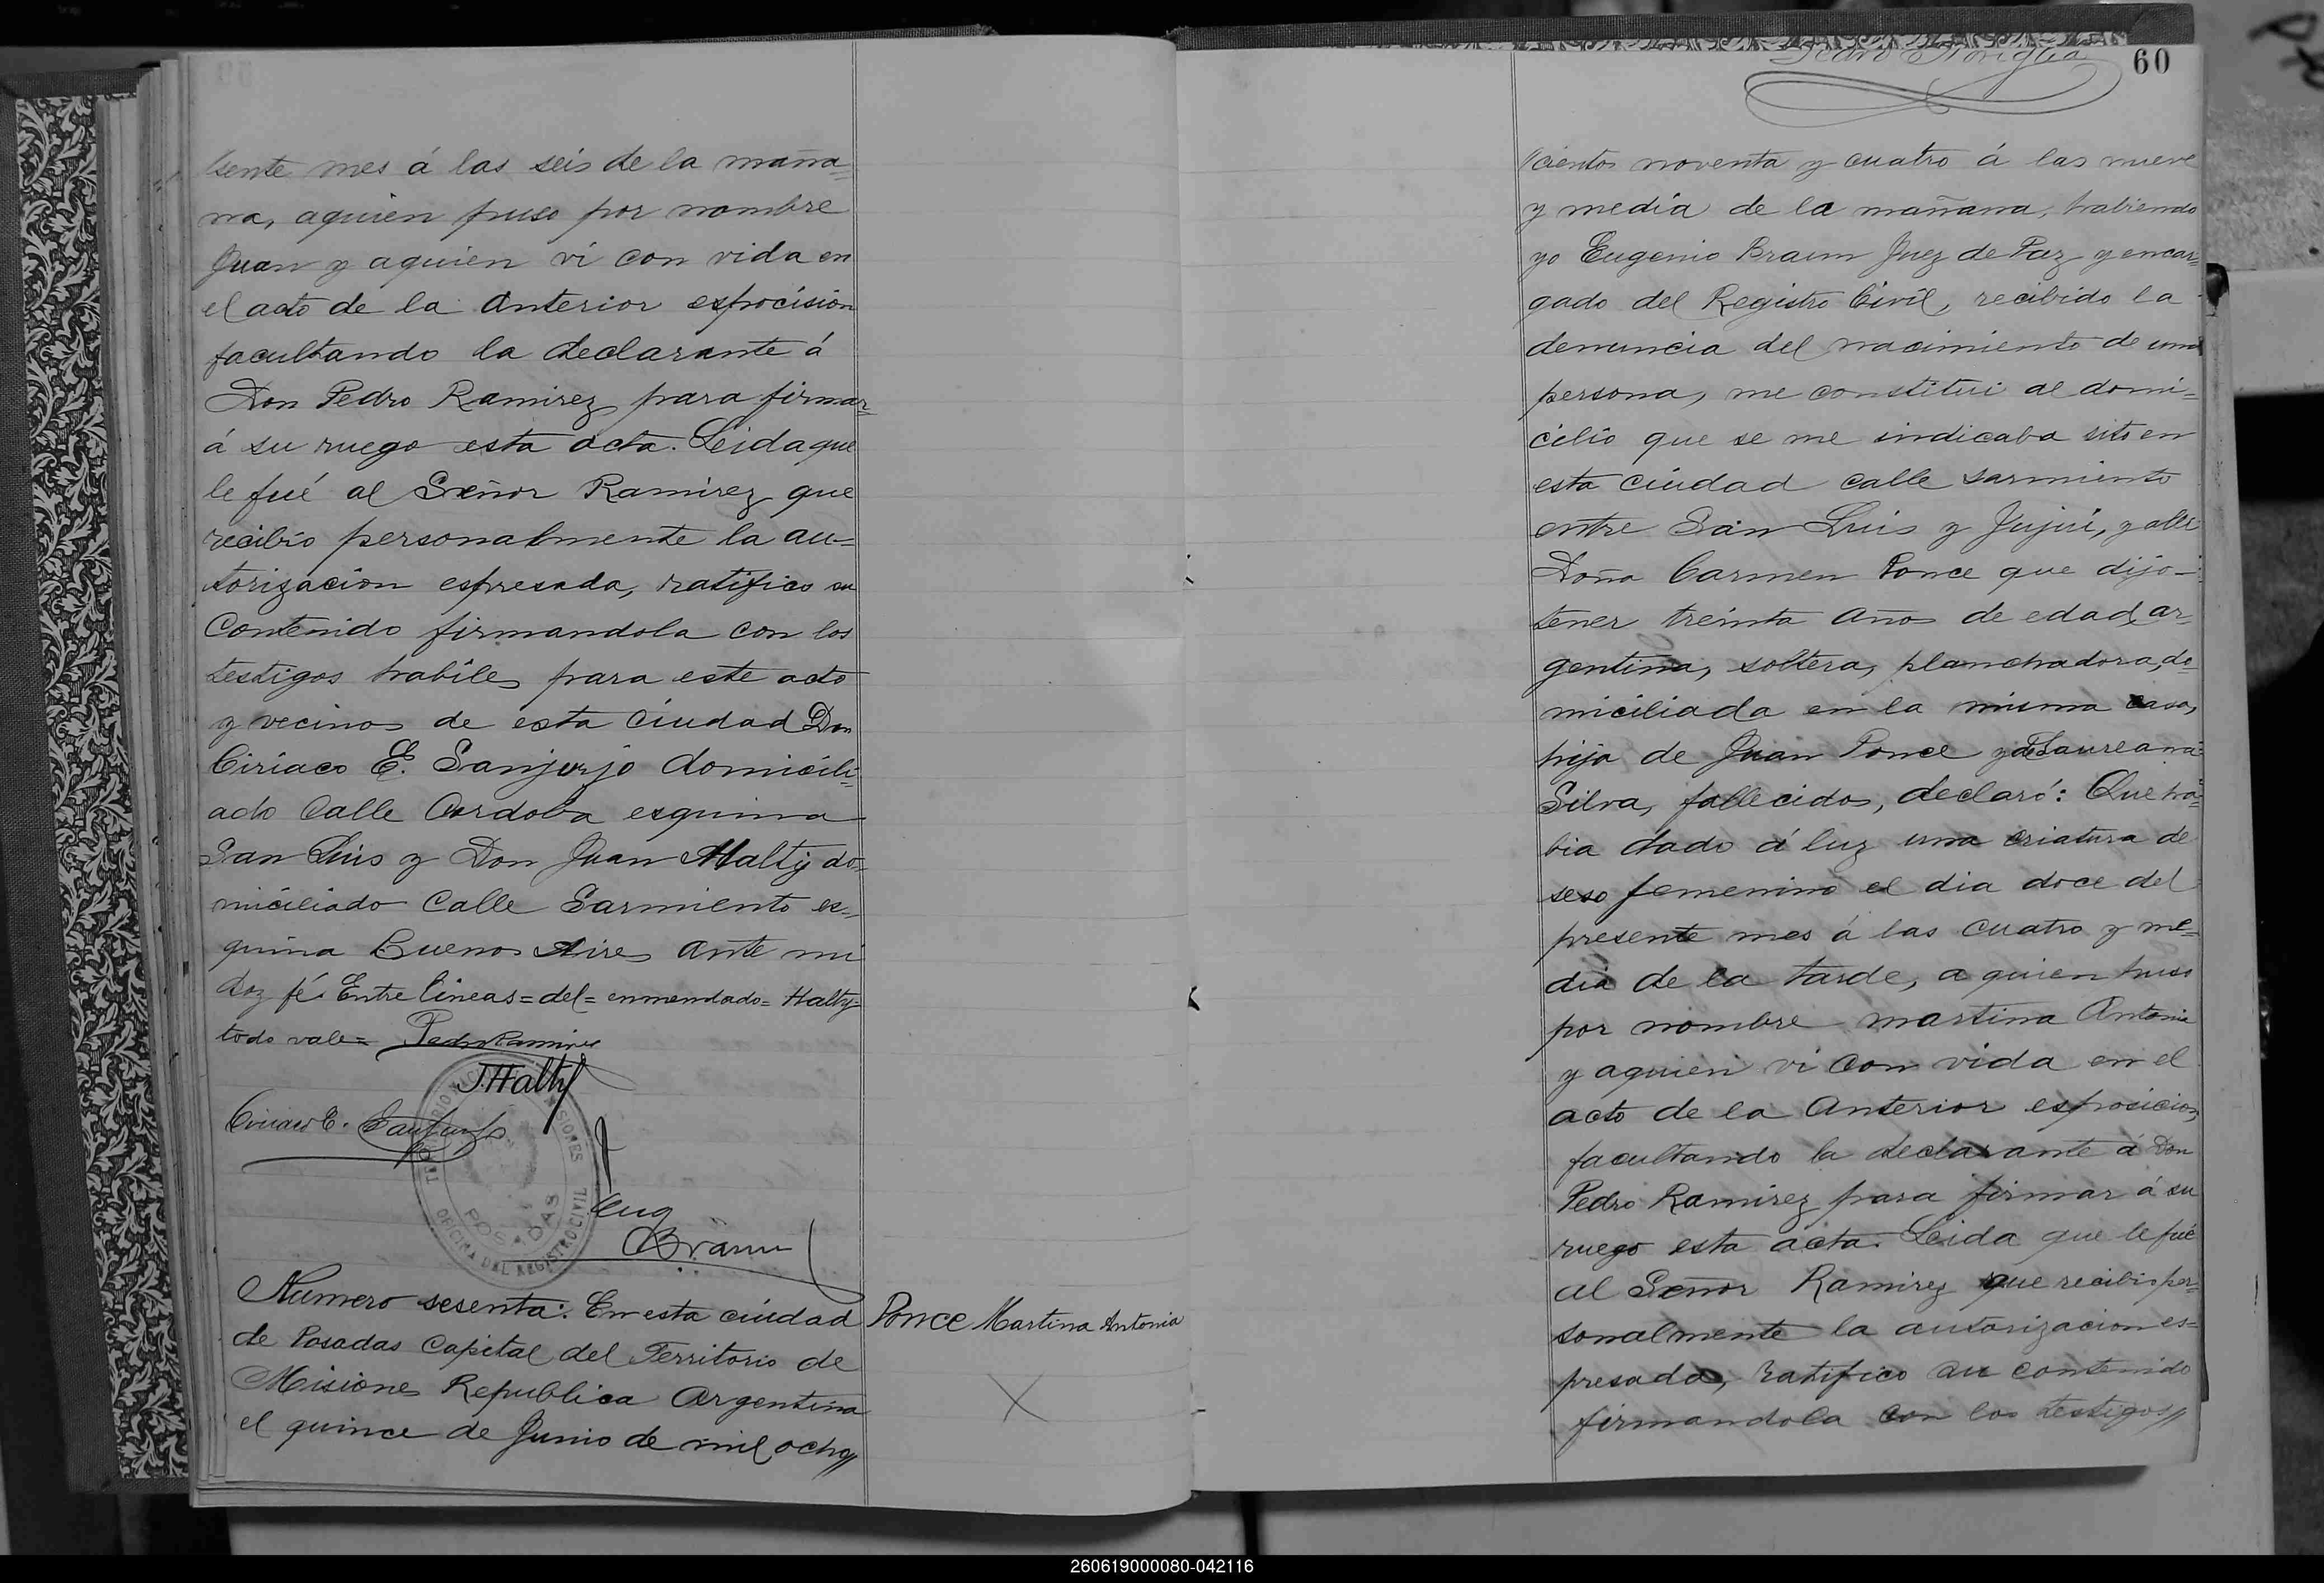 sente mes á las seis de la maña=
na, aquien puso por nombre
Juan y aquien ví con vida en
el acto de la anterior espocision
facultando la declarante á
Don Pedro Ramirez para firmar
á su ruego esta acta. Leida que
le fué al Señor Ramirez que
recibio personalmente la au=
torizacion espresada, ratifico su
Contenido firmandola con los
testigos habiles para este acto
y vecinos de esta Ciudad Don
Ciriaco E. Sanjurjo domicili=
ado Calle Cordoba esquina
San Luis y Don Juan Halty do=
miciliado Calle Sarmiento es=
quina Buenos Aires ante mi
doy fé. Entre lineas=del=enmendado=Halty=
todo vale= Pedro Ramirez
J. Halty
Ciriaco E. Sanjurjo
TERRITORIO MISIONES
POSADAS
OFICINA DEL REGISTRO CIVIL
Eug
Braun
Numero sesenta: En esta ciudad
de Posadas Capital del Territorio de
Misiones Republica Argentina
el quince de Junio de mil ocho//
Ponce Martina Antonia
60
//cientos noventa y cuatro á las nueve
y media de la mañana, habiendo
yo Eugenio Braun Juez de Paz y encar=
gado del Registro Civil, recibido la
denuncia del nacimiento de una
persona, me constitui al domi=
cilio que se me indicaba sito en
esta Ciudad calle Sarmiento
entre San Luis y Jujui, y alli
Doña Carmen Ponce que dijo
tener treinta años de edad, ar=
gentina, soltera, planchadora, do=
miciliada en la misma casa,
hija de Juan Ponce y de Laureana
Silva, fallecidos, declaró: Que ha=
bia dado á luz una criatura de
seso femenino el dia doce del
presente mes á las cuatro y me=
dia de la tarde, a quien puso
por nombre Martina Antonia
y aquien vi con vida en el
acto de la anterior esposicion,
facultando la declarante á Don
Pedro Ramirez para firmar á su
ruego esta acta. Leida que le fué
al Señor Ramirez que recibio per=
sonalmente la autorizacion es=
presada, ratifico su contenido
firmandola con los testigos//
260619000080-042116